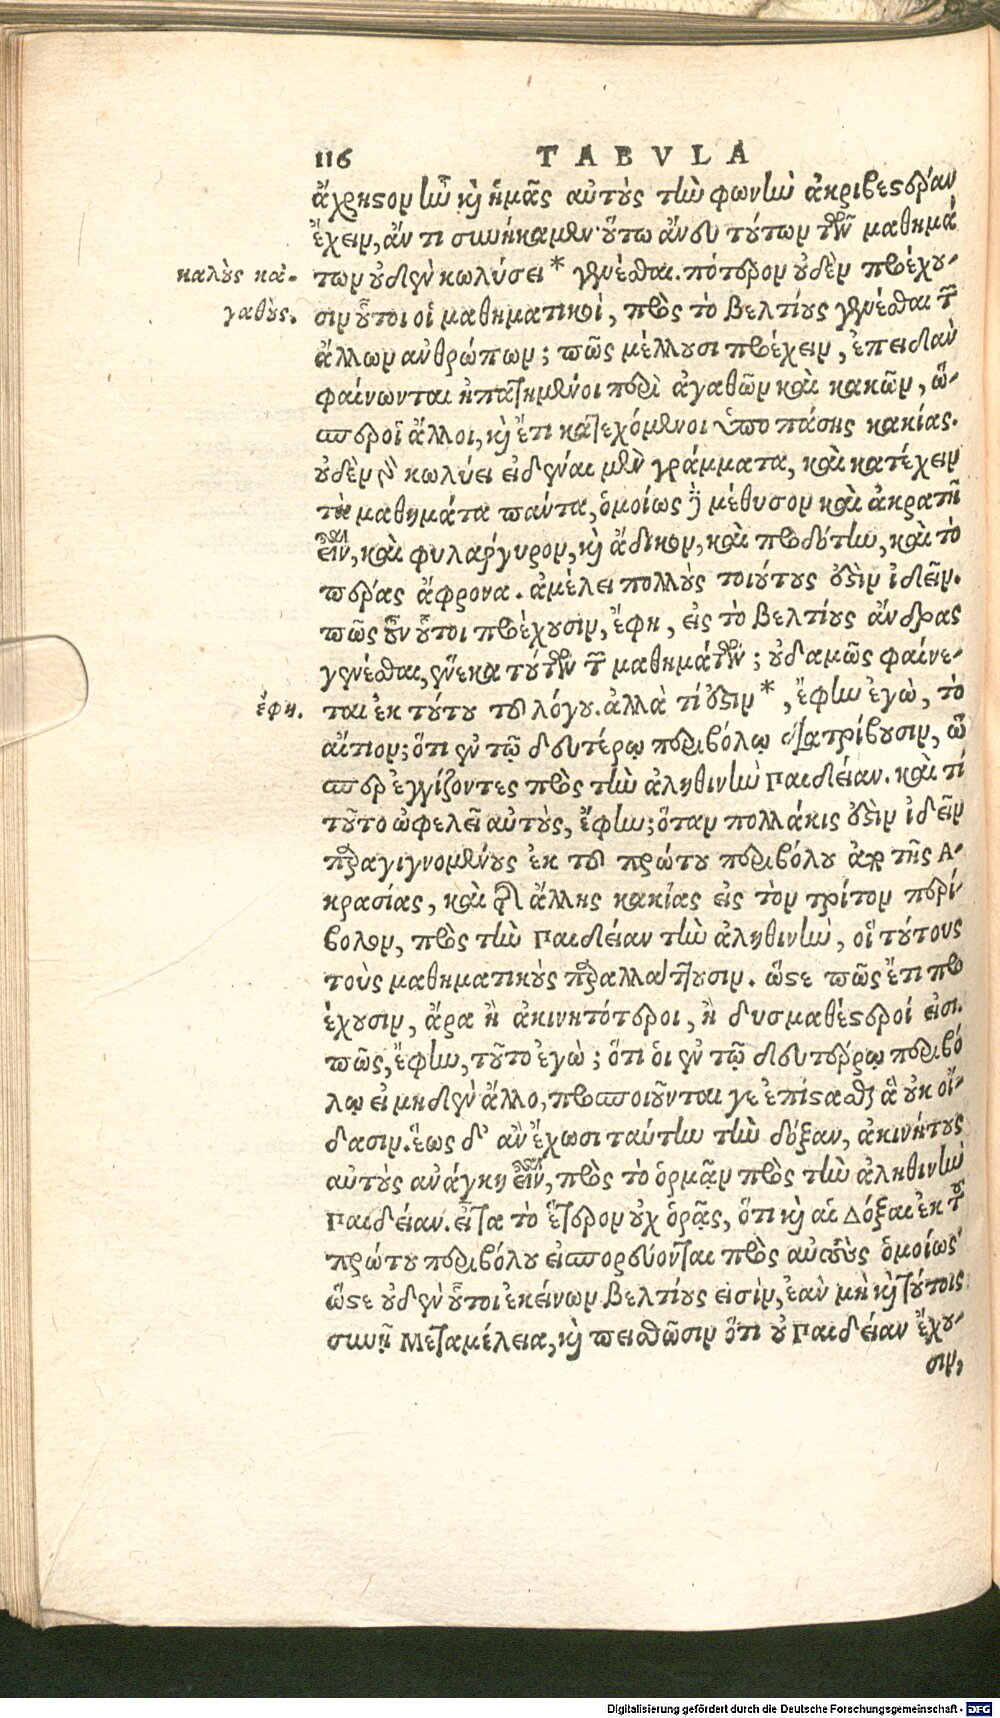 116 TABVLA
ἄχρηστον ἦν καὶ ἡμᾶς αὐτοὺς τὴν φωνὴν ἀκριβεστέραν
ἔχειν, ἄν τι συνήκαμεν· οὕτω ἄνευ τούτων τῶν μαθημά
καλοὺς κἀ-
των οὐδὲν κωλύσει * γενέσθαι. πότερον οὐδὲν προέχου-
γαθοὺς.
σιν οὗτοι οἱ μαθηματικοί, πρὸς τὸ βελτίους γενέσθαι τῶν
ἄλλων ἀνθρώπων; πῶς μέλλουσι προέχειν, ἐπειδὰν
φαίνωνται ἠπατημένοι περὶ ἀγαθῶν καὶ κακῶν, ὥ-
σπερ οἱ ἄλλοι, καὶ ἔτι κατεχόμενοι ὑπὸ πάσης κακίας.
οὐδὲν γὰρ κωλύει εἰδέναι μὲν γράμματα, καὶ κατέχειν
τὰ μαθημάτα πάντα, ὁμοίως δὲ μέθυσον καὶ ἀκρατῆ
εἶναι, καὶ φυλάργυρον, καὶ ἄδικον, καὶ προδότην, καὶ τὸ
πέρας ἄφρονα. ἀμέλει πολλοὺς τοιούτους ἔστιν ἰδεῖν.
πῶς οὖν οὗτοι προέχουσιν, ἔφη, εἰς τὸ βελτίους ἄνδρας
γενέσθαι, ἕνεκα τούτων τῶν μαθημάτων; οὐδαμῶς φαίνε-
ἔφη.
ται ἐκ τούτου τοῦ λόγου. ἀλλὰ τί ἔστιν *, ἔφην ἐγὼ, τὸ
αἴτιον; ὅτι ἐν τῷ δευτέρῳ περιβόλῳ διατρίβουσιν, ὥ
σπερ ἐγγίζοντες πρὸς τὴν ἀληθινὴν Παιδείαν. καὶ τί
τοῦτο ὠφελεῖ αὐτοὺς, ἔφην; ὅταν πολλάκις ἔστιν ἰδεῖν
παραγιγνομένους ἐκ τοῦ πρώτου περιβόλου ἀπὸ τῆς Ἀ-
κρασίας, καὶ τῆς ἄλλης κακίας εἰς τὸν τρίτον περί-
βολον, πρὸς τὴν Παιδείαν τὴν ἀληθινὴν, οἳ τούτους
τοὺς μαθηματικοὺς παραλλάττουσιν. ὥστε πῶς ἔτι προ
έχουσιν, ἄρα ἢ ἀκινητότεροι, ἢ δυσμαθέστεροί εἰσι.
πῶς, ἔφην, τοῦτο ἐγὼ; ὅτι οἱ ἐν τῷ δευτέρῳ περιβό
λῳ εἰ μηδὲν ἄλλο, προσποιοῦνταί γε ἐπίστασθαι ἃ οὐκ οἴ-
δασιν. ἕως δ' ἂν ἔχωσι ταύτην τὴν δόξαν, ἀκινήτους
αὐτοὺς ἀνάγκη εἶναι, πρὸς τὸ ὁρμᾷν πρὸς τὴν ἀληθινὴν
Παιδείαν. εἶτα τὸ ἕτερον οὐχ ὁρᾷς, ὅτι καὶ αἱ Δόξαι ἐκ τοῦ
πρώτου περιβόλου εἰσπορεύονται πρὸς αὐτοὺς ὁμοίως
ὥστε οὐδὲν οὗτοι ἐκείνων βελτίους εἰσὶν, ἐὰν μὴ καὶ τούτοις
συνῇ Μεταμέλεια, καὶ πεισθῶσιν ὅτι οὐ Παιδείαν ἔχου-
σιν,
Digitalisierung gefördert durch die Deutsche Forschungsgemeinschaft - DFG